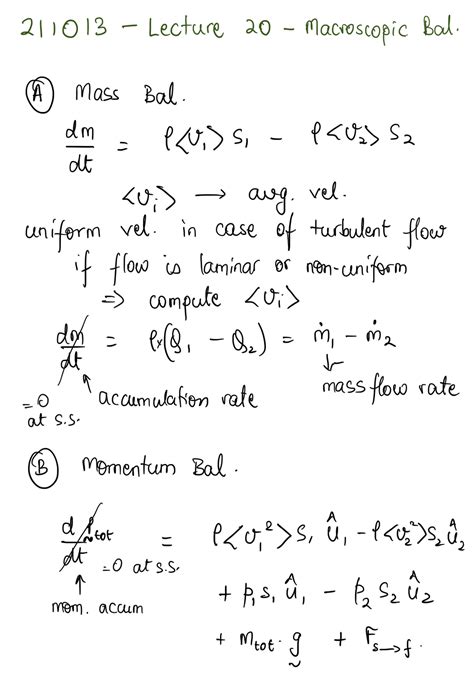 211013 – Lecture 20 – Macroscopic Bal.
Ⓐ Mass Bal.
dm/dt = ρ<v₁> S₁ − ρ<v₂> S₂
<vᵢ> → avg. vel.
uniform vel. in case of turbulent flow
if flow is laminar or non-uniform
⇒ compute <vᵢ>
dm/dt = ρ×(Q₁ − Q₂) = ṁ₁ − ṁ₂
=0 at s.s. ↑ accumulation rate ↓ mass flow rate
Ⓑ Momentum Bal.
d P̰tot/dt =0 at s.s. = ρ<v₁²> S₁ û₁ − ρ<v₂²> S₂ û₂
↑ + p₁ S₁ û₁ − p₂ S₂ û₂
mom. accum + mtot · g̰ + Fs→f.